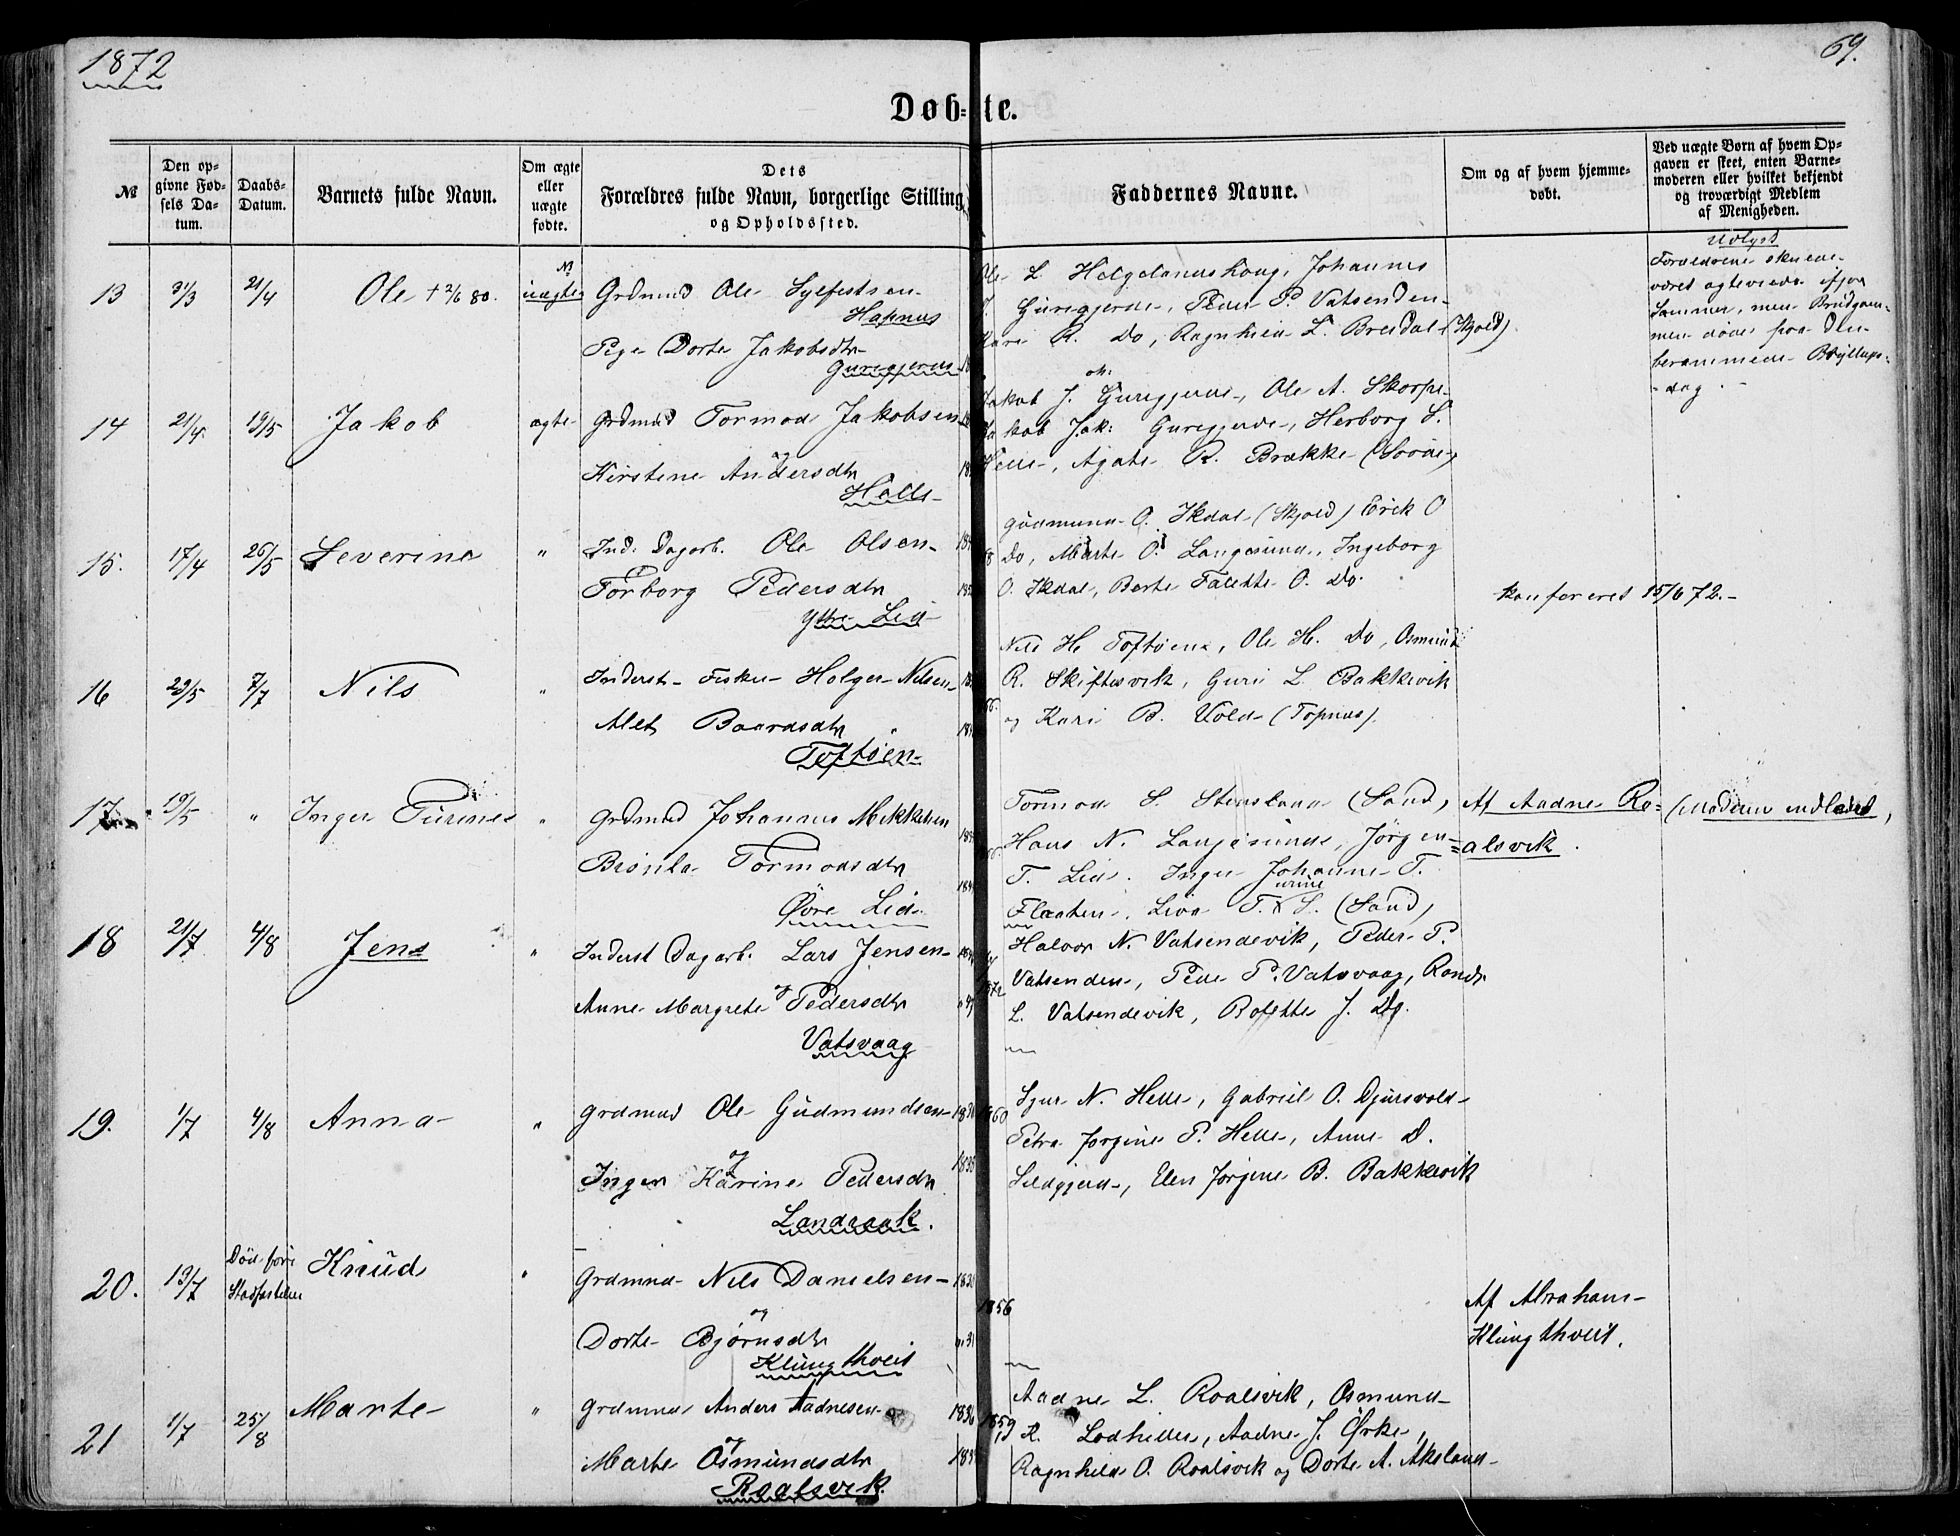 1872
69.
Døb= te.
№
Den op-
givne Fød-
sels Da-
tum.
Daabs-
Datum.
Barnets fulde Navn.
Om ægte
eller
uægte
fødte.
Dets
Forældres fulde Navn, borgerlige Stilling
og Opholdssted.
Faddernes Navne.
Om og af hvem hjemme-
døbt.
Ved uægte Børn af hvem Op-
gaven er skeet, enten Barne-
moderen eller hvilket bekjendt
og troværdigt Medlem
af Menigheden.
13 31/3 21/4 Ole + 2/6 80. uægte Grdmnd Ole Sylfestsen
Hapnes
Pige Dorte Jakobsdtr
Guregjerde
Ole L. Helgelandshaug, Johannes
J. Guregjerde, Peder P. Vatsenden
Kari R. Do, Ragnhild L. Bredal (Skjold)
Udlyst
Forældrene skulde
været ægteviede ifjor
Sommer, men Brudgom-
men døde paa den
berammede Bryllups-
dag.
14 21/4 19/5 Jakob ægte Grdmnd Tormod Jakobsen
og
Kirstine Andersdtr
Helle
Jakob J. Guregjerde, Ole A. Skorpe
Jakob Jak: Guregjerde, Herborg S.
Helle, Agate R. Brække
15. 17/4 26/5 Severine " Ind. Dagarb. Ole Olsen
Torborg Pedersdtr
Ytre Lid
Gudmund O. Ikdal (Skjold) Erik O
Do, Marte O. Langesund, Ingeborg
O. Ikdal, Berte Talette O. Do.
konfereret 15/6 72.-
16 23/5 7/7 Nils " Inderst Fisker Holger Nilsen
Alet Baardsdtr
Toftøen
Nils H. Toftøen, Ole H. Do, Osmund
R. Skiftesvik, Guri L. Bakkevik
og Kari B. Vold (Topnes).
17. 19/5 " Inger Turine " Grdmnd Johannes Mikkelsen
Brønla Tormodsdtr
Øvre Lid
Tormod S. Stensland (Sand)
Hans N. Langesund, Jørgen
T. Lid. Inger Johanne T.
Flaaten, Liva T. S. (Sand)
Af Aadne Ro-
alsvik.
(Moderen indledet)
18 21/7 4/8 Jens " Inderst Dagarb. Lars Jensen
og
Anne Margrete Pedersdtr
Vatsvaag
Halvor N. Vatsendevik, Peder P.
Vatsenden, Peder P. Vatsvaag, Randi
L. Vatsendevik, Bolette J. Do.
19. 1/7 4/8 Anna " Grdmnd Ole Gudmundsen
og
Inger Karine Pedersdtr 1835
Landraak.
1860
Sjur N. Helle, Gabriel O. Djursvold
Petra Jørgine P. Helle, Anne D.
Lidgjerd, Elen Jørgine B. Bakkevik
20. 13/7 Død før
Stadfæstelsen
Knud " Grdmnd Nils Danielsen
og
Dorte Bjørnsdtr
Klungthveit
1856
Af Abraham
Klungthveit.
21 1/7 25/8 Marte " Grdmnd Anders Aadnesen 1836
og
Marte Osmundsdtr
Roalsvik
1859
Aadne L. Roalsvik, Osmund
R. Lodhelle, Aadne J. Ørke,
Ragnhild O. Roalsvik og Dorte A. Aksland